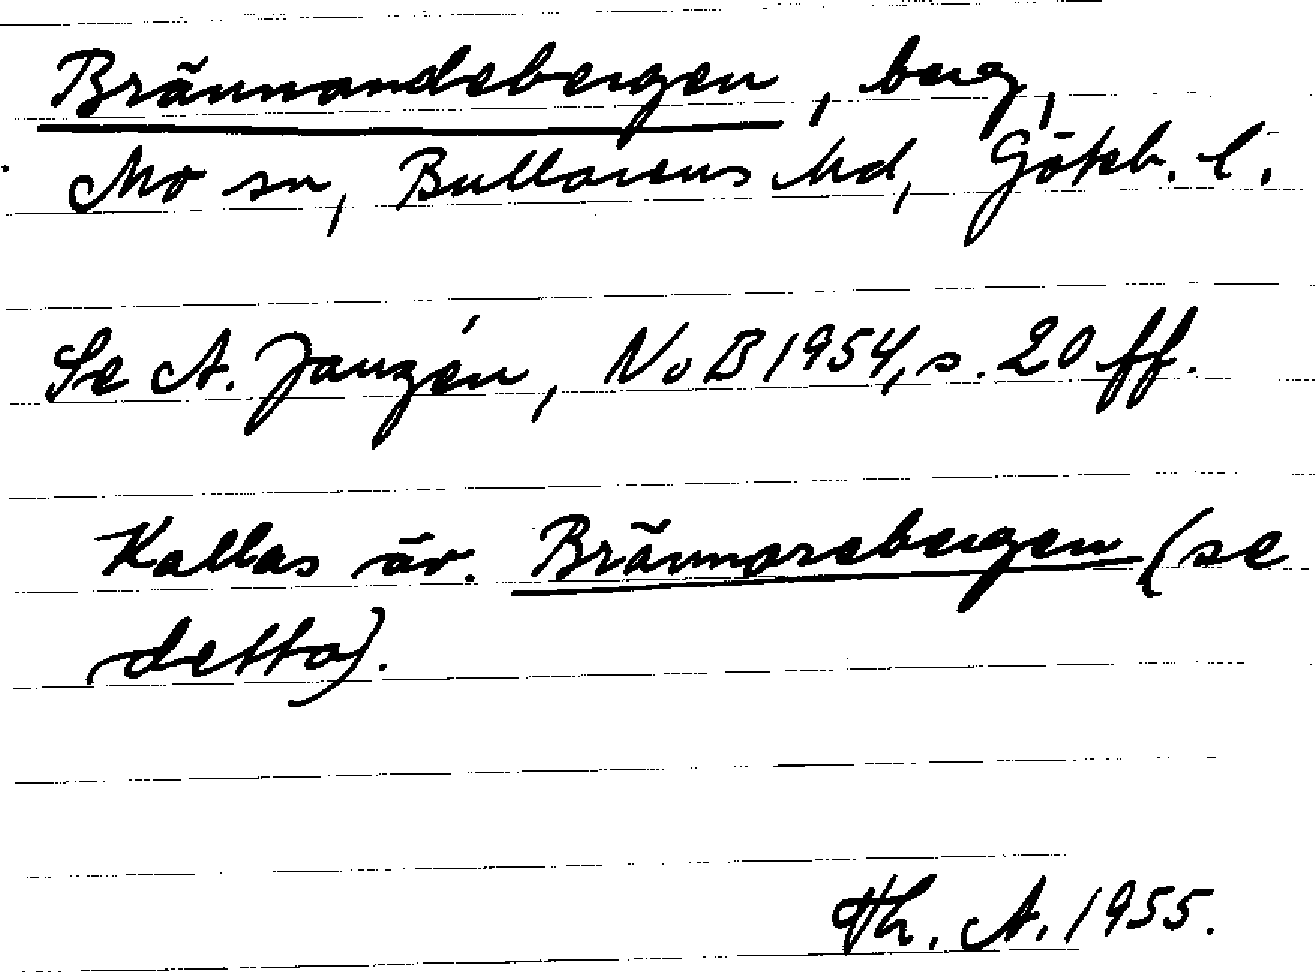 Brännandebergen, berg,
Mo sn, Bullarens hd, Göteb. l.
Se A. Janzén, NoB 1954, s. 20 ff.
Kallas äv. Brännarebergen (se
detta).
Th. A. 1955.